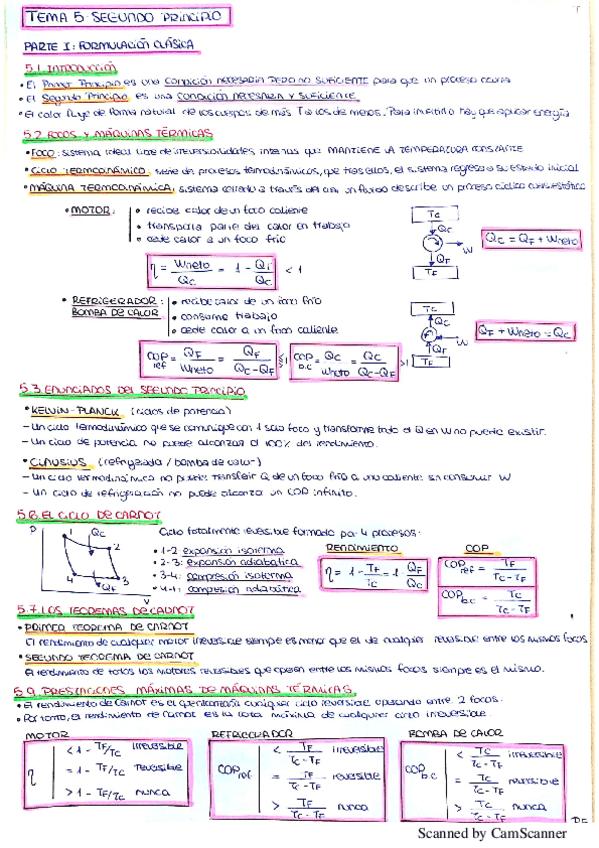 TEMA 5: SEGUNDO PRINCIPIO
PARTE I: FORMULACIÓN CLÁSICA
5.1. INTRODUCCIÓN
• El Primer Principio es una CONDICIÓN NECESARIA PERO NO SUFICIENTE para que un proceso ocurra
• El Segundo Principio es una CONDICIÓN NECESARIA Y SUFICIENTE
• El calor fluye de forma natural de los cuerpos de más T a los de menos. Para invertirlo hay que aplicar energía
5.2. FOCOS Y MÁQUINAS TÉRMICAS
• FOCO: sistema ideal libre de irreversibilidades internas que MANTIENE LA TEMPERATURA CONSTANTE
• CICLO TERMODINÁMICO: serie de procesos termodinámicos, que tras ellos, el sistema regresa a su estado inicial
• MÁQUINA TERMODINÁMICA: sistema cerrado a través del cual un fluido describe un proceso cíclico cuasiestático
• MOTOR: • recibe calor de un foco caliente
• transforma parte del calor en trabajo
• cede calor a un foco frío
TC
QC
W
QF
TF
QC = QF + Wneto
η = Wneto/QC = 1 - QF/QC < 1
• REFRIGERADOR: • recibe calor de un foco frío
BOMBA DE CALOR • consume trabajo
• cede calor a un foco caliente
TC
QC
W
QF
TF
QF + Wneto = QC
COP ref = QF/Wneto = QF/(QC-QF)
COP b.c = QC/Wneto = QC/(QC-QF) >1
5.3. ENUNCIADOS DEL SEGUNDO PRINCIPIO
• KELVIN-PLANCK (ciclos de potencia)
- Un ciclo termodinámico que se comunique con 1 solo foco y transforme todo el Q en W no puede existir.
- Un ciclo de potencia no puede alcanzar el 100% del rendimiento.
• CLAUSIUS (refrigerador / bomba de calor)
- Un ciclo termodinámico no puede transferir Q de un foco frío a uno caliente sin consumir W
- Un ciclo de refrigeración no puede alcanzar un COP infinito.
5.6. EL CICLO DE CARNOT
P
1
QC
2
4
3
QF
V
Ciclo totalmente reversible formado por 4 procesos:
• 1-2: expansión isoterma
• 2-3: expansión adiabática
• 3-4: compresión isoterma
• 4-1: compresión adiabática
RENDIMIENTO
η = 1 - TF/TC = 1 - QF/QC
COP
COP ref = TF/(TC-TF)
COP b.c = TC/(TC-TF)
5.7. LOS TEOREMAS DE CARNOT
• PRIMER TEOREMA DE CARNOT
El rendimiento de cualquier motor irreversible siempre es menor que el de cualquier reversible entre los mismos focos
• SEGUNDO TEOREMA DE CARNOT
El rendimiento de todos los motores reversibles que operan entre los mismos focos siempre es el mismo.
5.9. PRESTACIONES MÁXIMAS DE MÁQUINAS TÉRMICAS
• El rendimiento de Carnot es el de cualquier ciclo reversible operando entre 2 focos.
• Por tanto, el rendimiento de Carnot es la cota máxima de cualquier ciclo irreversible.
MOTOR
η
< 1 - TF/TC irreversible
= 1 - TF/TC reversible
> 1 - TF/TC nunca
REFRIGERADOR
COP ref
< TF/(TC-TF) irreversible
= TF/(TC-TF) reversible
> TF/(TC-TF) nunca
BOMBA DE CALOR
COP b.c
< TC/(TC-TF) irreversible
= TC/(TC-TF) reversible
> TC/(TC-TF) nunca
Scanned by CamScanner